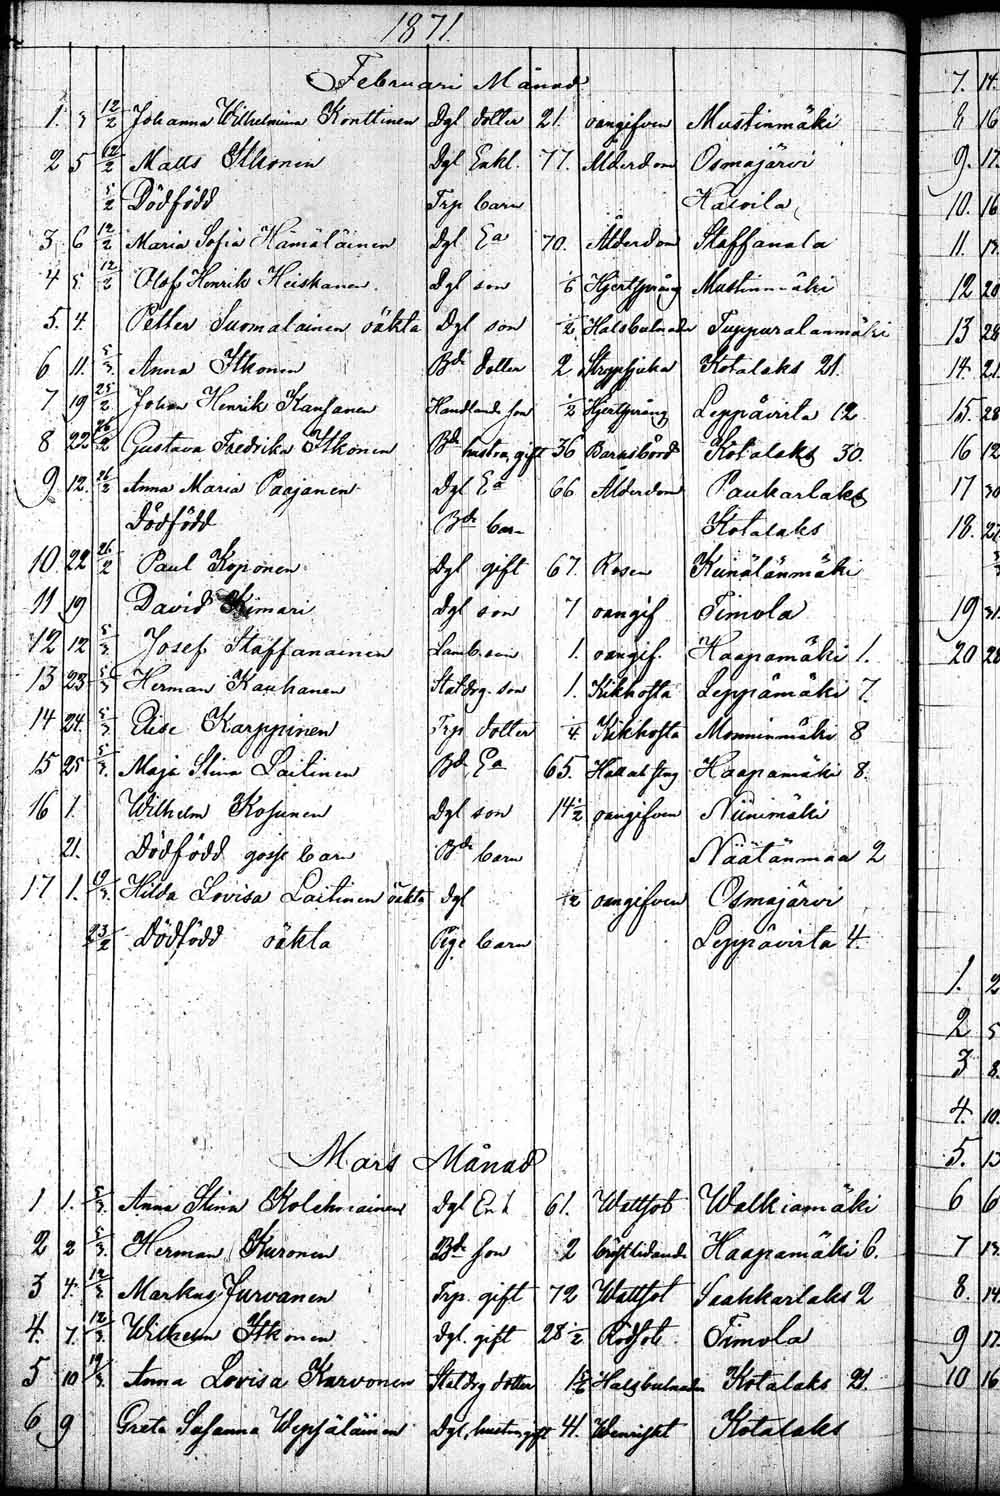 1871.
Februari Månad
1. 3 12/2 Johanna Wilhelmina Konttinen Dgl dotter 21. oangifven Mustinmäki
2 5 12/2 Matts Itkonen Dgl Enkl. 77. Ålderdom Osmajärvi
5/2 Dödfödd Trp barn
3 6 12/2 Maria Sofia Hämäläinen Dgl Ea 70. Ålderdom Staffanala
4 5. 12/2 Olof Henrik Heiskanen Dgl son Hjertsprång Mustinmäki
5. 4. Petter Suomalainen oäkta Dgl son 1/2 Halsbulnader Tuppuralanmäki
6 11. 5/3. Anna Itkonen Bd dotter 2 Strypsjuka Kotalaks 21.
7 19 25/2 Johan Henrik Kaufanen Handlande son 1/2 Hjertsprång Leppävirta 12
8 22 26/2 Gustava Fredrika Itkonen Bde hustru, gift 36 Barnsbörd Kotalaks 30.
9. 12. 26/2 Anna Maria Paajanen Dgl Ea 66 Ålderdom Paukarlaks
Dödfödd Bde barn Kotalaks
10. 22 26/2 Paul Koponen Dgl gift 67. Rosen
11 19 David Kimari Dgl son 7 oangif Timola
12 12 5/3. Josef Staffanainen Lamb. son 1. oangif. Haapamäki 1.
13 23 5/3 Herman Kauhanen Statdrg. son 1. Kikhosta Leppämäki 7.
14 24. 5/3 Elise Karppinen Trp dotter 1/4 Kikhosta Monninmäki 8
15 25 5/3. Maja Stina Laitinen Bde Ea 65. Håll ok styng Haapamäki 8.
16 1. Wilhelm Kosunen Dgl son 14 1/2 oangifven Niinimäki
21. Dödfödd gosse barn Bde barn Näätänmaa 2
17 1. 19/3. Hilda Lovisa Laitinen oäkta Dgl 1/2 oangifven Osmajärvi
23/2 Dödfödd oäkta Pige barn Leppävirta 4.
Mars Månad
1 1. 5/3. Anna Stina Kolehmainen Dgl Enk 61. Wattsot Walkiamäki
2 2 5/3. Herman Kuronen Bde son 2 bröstlidande Haapamäki 6.
3 4. 12/3. Markus Jurvanen Trp. gift 72 Wattsot Saahkarlaks 2
4. 7. 12/3. Wilhelm Itkonen Dgl. gift 28 1/2 Rödsot. Timola
5 10 19/3. Anna Lovisa Karvonen Statdrg dotter Halsbulnader Kotalaks 21.
6 9 Greta Susanna Wepsäläinen Dgl, hustru, gift 41. Kotalaks
7. 14.
8 16
9. 17.
10. 16
11. 13.
12 20
13 28
14. 21.
15. 28
16 12
17 30
18. 21
19 31.
20 28
1. 2
2 5
3 8.
4. 10.
5. 13
6 6
7 13.
8. 14
9 17.
10 16